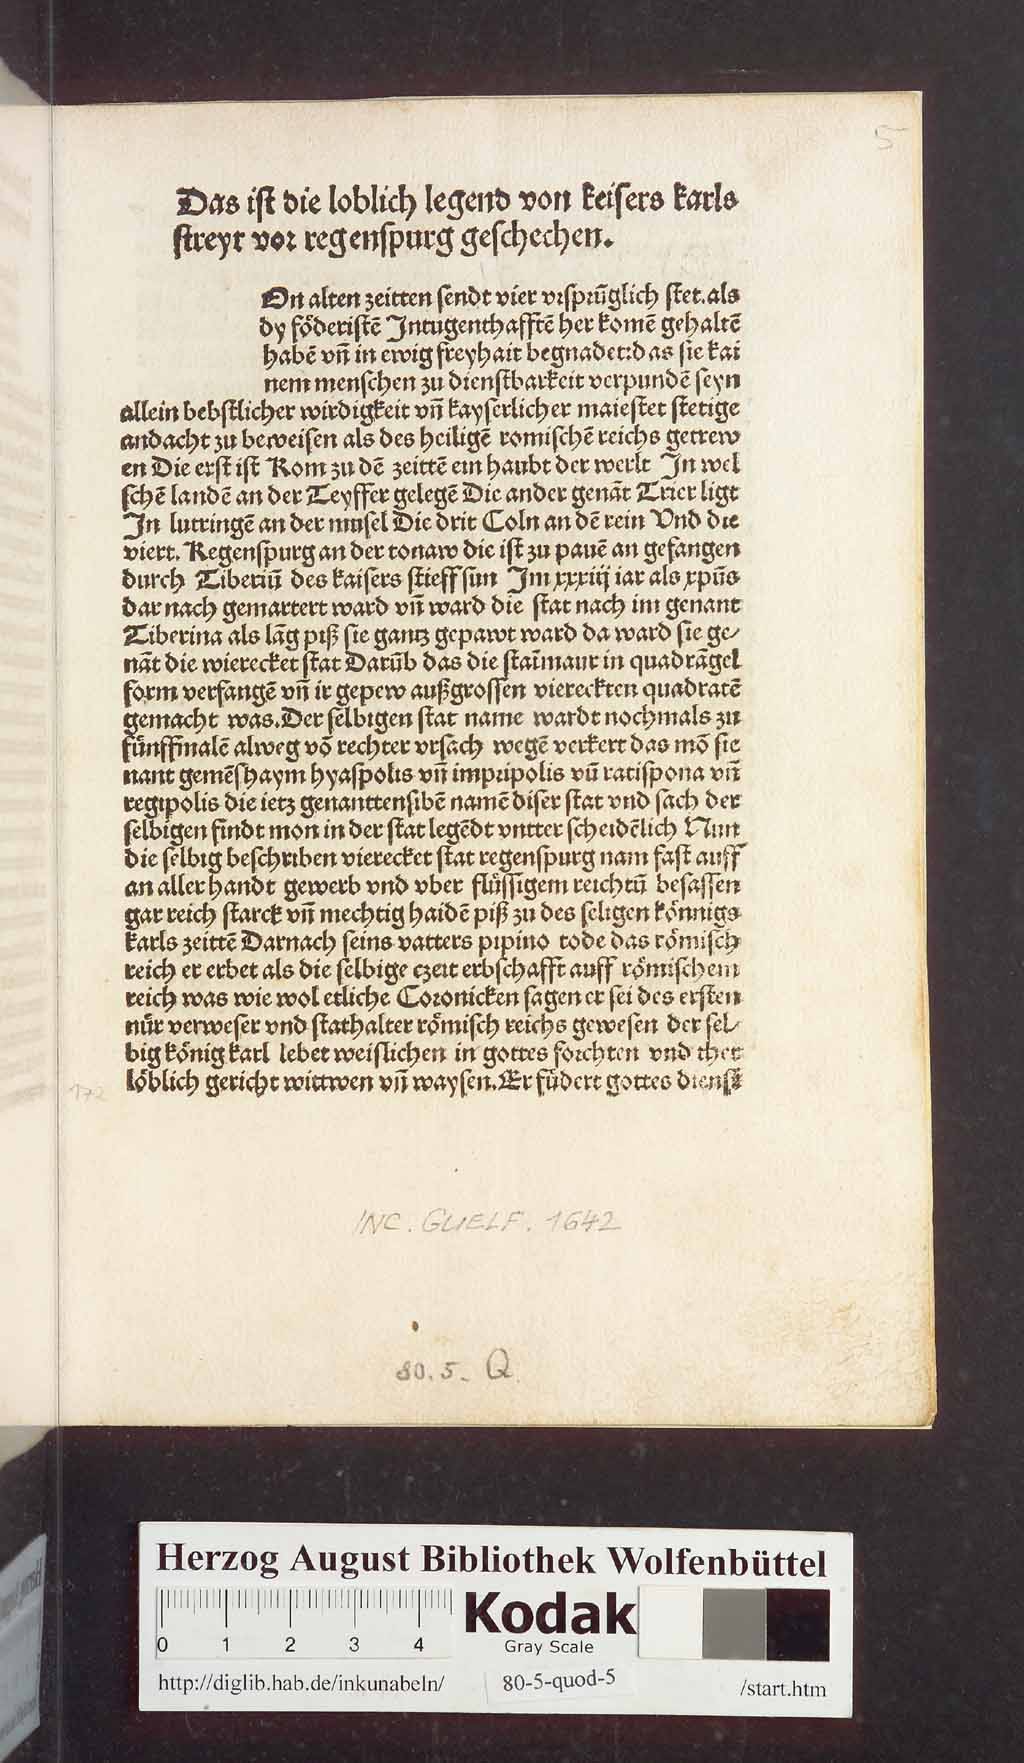 5
Das ist die loblich legend von keisers karls
streyt vor regenspurg geschechen.
On alten zeitten sendt vier vrsprūglich stet. als
dy föderistē Intugenthafftē her komē gehaltē
habē vñ in ewig freyhait begnadet: das sie kai
nem menschen zu dienstbarkeit verpundē seyn
allein bebstlicher wirdigkeit vñ kayserlicher maiestet stetige
andacht zu beweisen als des heiligē romischē reichs getrew
en Die erst ist Rom zu dē zeittē ein haubt der werlt In wel
schē landē an der Teyffer gelegē Die ander genāt Trier ligt
In lutringē an der musel Die drit Coln an dē rein Vnd die
viert. Regenspurg an der tonaw die ist zu pauē an gefangen
durch Tiberiū des kaisers stieff sun Im xxxiiij iar als xpūs
dar nach gemartert ward vñ ward die stat nach im genant
Tiberina als lāg piß sie gantz gepawt ward da ward sie ge/
nāt die wierecket stat Darūb das die statmaur in quadrāgel
form verfangē vñ ir gepew außgrossen viereckten quadratē
gemacht was. Der selbigen stat name wardt nochmals zu
fünffmalē alweg vō rechter vrsach wegē verkert das mō sie
nant gemēshaym hyaspolis vñ impripolis vñ ratispona vñ
regipolis die ietz genanttensibē namē diser stat vnd sach der
selbigen findt mon in der stat legēdt vntter scheidēlich Nun
die selbig beschriben vierecket stat regenspurg nam fast auff
an aller handt gewerb vnd vber flüssigem reichtū besassen
gar reich starck vñ mechtig haidē piß zu des seligen könnigs
karls zeittē Darnach seins vatters pipino tode das römisch
reich er erbet als die selbige czeit erbschafft auff römischem
reich was wie wol etliche Coronicken sagen er sei des ersten
nür verweser vnd stathalter römisch reichs gewesen der sel/
big könig karl lebet weislichen in gottes forchten vnd thet
löblich gericht wittwen vñ waysen. Er füdert gottes dienst
172
INC. GUELF. 1642
80. 5. Q
Herzog August Bibliothek Wolfenbüttel
0 1 2 3 4
Kodak
Gray Scale
http://diglib.hab.de/inkunabeln/
80-5-quod-5
/start.htm